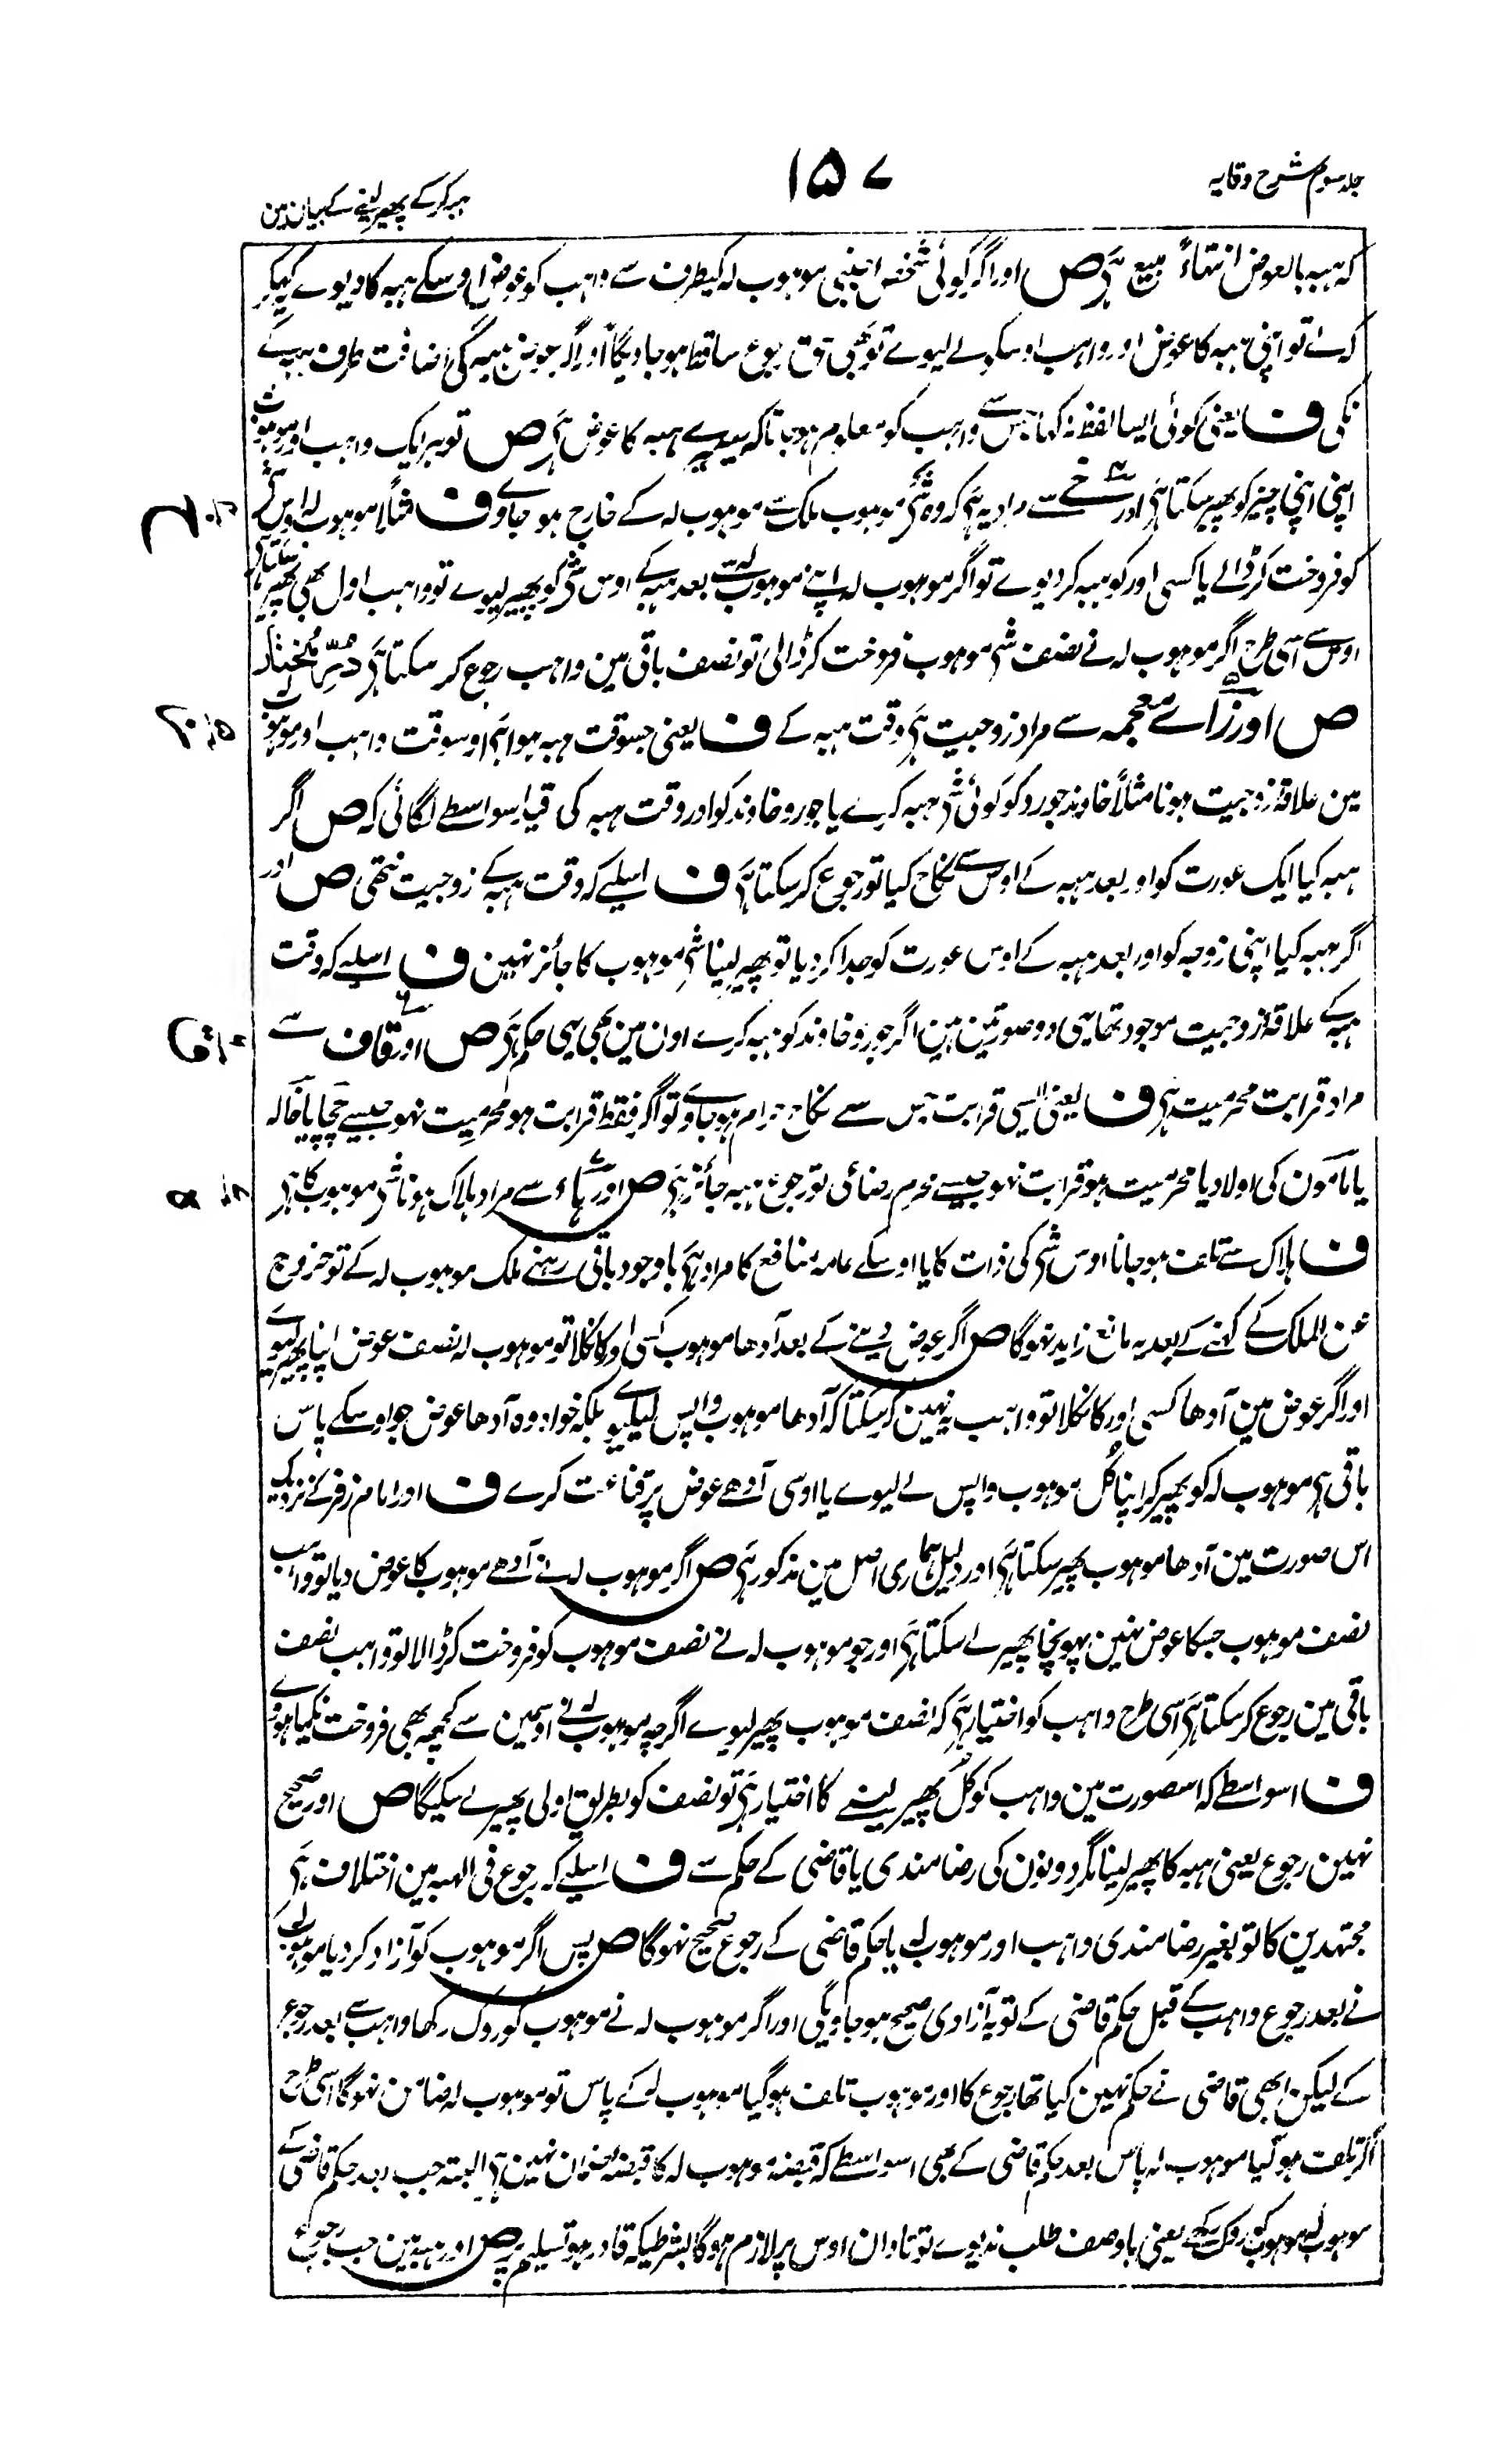 جلد سوم شرح وقایہ
۱۵۷
ہبہ کرکے پھیر لینے کے بیان مین
کہ ہبہ بالعوض انتہاءً بیع ہے ص اور اگر کوئی شخص اجنبی موہوب لہ کیطرف سے واہب کو عوض اوسکے ہبہ کا دیوے یہ کہکر
کہ لے تو اپنی ہبہ کا عوض اور واہب اوسکو لے لیوے تو بھی حق رجوع ساقط ہو جاویگا اور اگر عوض ہبہ کی اضافت طرف ہبہ کے
نکی ف یعنی کوئی ایسا لفظ نہ کہا جس سے واہب کو معلوم ہوتا کہ یہ میرے ہبہ کا عوض ہے ص تو ہر ایک واہب اور موہوب لہ
اپنی اپنی چیز کو پھیر سکتا ہے اور خے سے مراد یہ ہے کہ وہ شے موہوب ملک سے موہوب لہ کے خارج ہو جاوے ف مثلاً موہوب لہ اوس شے
کو فروخت کر ڈالے یا کسی اور کو ہبہ کر دیوے تو اگر موہوب لہ اپنے موہوب لہ سے بعد ہبہ کے اوس شے کو پھیر لیوے تو واہب اول بھی پھیر سکتا ہے
اوس سے اسی طرح اگر موہوب لہ نے نصف شے موہوب فروخت کر ڈالی تو نصف باقی مین واہب رجوع کر سکتا ہے در مختار
ص اور زاے معجمہ سے مراد زوجیت ہے وقت ہبہ کے ف یعنی جسوقت ہبہ ہوا ہے اوسوقت واہب اور موہوب لہ
مین علاقۂ زوجیت ہونا مثلاً خاوند جورو کو کوئی شے ہبہ کرے یا جورو خاوند کو اور وقت ہبہ کی قید اسواسطے لگائی کہ ص اگر
ہبہ کیا ایک عورت کو اور بعد ہبہ کے اوس سے نکاح کیا تو رجوع کر سکتا ہے ف اسلیے کہ وقت ہبہ کے زوجیت نتھی ص اور
اگر ہبہ کیا اپنی زوجہ کو اور بعد ہبہ کے اوس عورت کو جدا کر دیا تو پھیر لینا شے موہوب کا جائز نہین ف اسلیے کہ وقت
ہبہ کے علاقۂ زوجیت موجود تھا یہی دو صورتین ہین اگر جورو خاوند کو ہبہ کرے اون مین بھی یہی حکم ہے ص اور قاف سے
مراد قرابت محرمیت ہے ف یعنی ایسی قرابت جس سے نکاح حرام ہو جاوے تو اگر فقط قرابت ہو محرمیت نہو جیسے چچا یا خالہ
یا مامون کی اولاد یا محرمیت ہو قرابت نہو جیسے محرم رضاعی تو رجوع ہبہ جائز ہے ص اور ہاء سے مراد ہلاک ہونا شے موہوب کا ہے
ف ہلاک سے تلف ہو جانا اوس شے کی ذات کا یا اوسکے عامہ منافع کا مراد ہے باوجود باقی رہنے ملک موہوب لہ کے تو خروج
عن الملک کے کہنے کے بعد یہ مانع زاید نہوگا ص اگر عوض دینے کے بعد آدھا موہوب کسی اور کا نکلا تو موہوب لہ نصف عوض اپنا پھیر لیوے
اور اگر عوض مین آدھا کسی اور کا نکلا تو واہب یہ نہین کر سکتا کہ آدھا موہوب واپس لیلیوے بلکہ خواہ وہ آدھا عوض جو اوسکے پاس
باقی ہے موہوب لہ کو پھیر کر اپنا کل موہوب واپس لے لیوے یا اوسی آدھے عوض پر قناعت کرے ف اور امام زفر کے نزدیک
اس صورت مین آدھا موہوب پھیر سکتا ہے اور دلیل ہماری اصل مین مذکور ہے ص اگر موہوب لہ نے آدھے موہوب کا عوض دیا تو واہب
نصف موہوب جسکا عوض نہین پہونچا پھیر لے سکتا ہے اور جو موہوب لہ نے نصف موہوب کو فروخت کر ڈالا تو واہب نصف
باقی مین رجوع کر سکتا ہے اسی طرح واہب کو اختیار ہے کہ نصف موہوب پھیر لیوے اگرچہ موہوب لہ نے اوسمین سے کچھ بھی فروخت نکیا ہووے
ف اسواسطے کہ اس صورت مین واہب کو کل پھیر لینے کا اختیار ہے تو نصف کو بطریق اولی پھیر لے سکیگا ص اور صحیح
نہین رجوع یعنی ہبہ کا پھیر لینا مگر دونون کی رضامندی یا قاضی کے حکم سے ف اسلیے کہ رجوع فی الہبہ مین اختلاف ہے
مجتہدین کا تو بغیر رضامندی واہب اور موہوب لہ یا حکم قاضی کے رجوع صحیح نہوگا ص پس اگر موہوب کو آزاد کر دیا موہوب لہ
نے بعد رجوع واہب کے قبل حکم قاضی کے تو یہ آزادی صحیح ہو جاویگی اور اگر موہوب لہ نے موہوب کو روک رکھا واہب سے بعد رجوع
کے لیکن ابھی قاضی نے حکم نہین کیا تھا رجوع کا اور موہوب تلف ہو گیا موہوب لہ کے پاس تو موہوب لہ ضامن نہوگا اسی طرح
اگر تلف ہو گیا موہوب لہ پاس بعد حکم قاضی کے بھی اسواسطے کہ قبضۂ موہوب لہ کا قبضۂ ضمان نہین ہے البتہ جب بعد حکم قاضی کے
موہوب لہ موہوب کو روک رکھے یعنی باوصف طلب ندیوے تو تاوان اوس پر لازم ہوگا بشرطیکہ قادر ہو تسلیم پر ص اور ہبہ مین جب رجوع